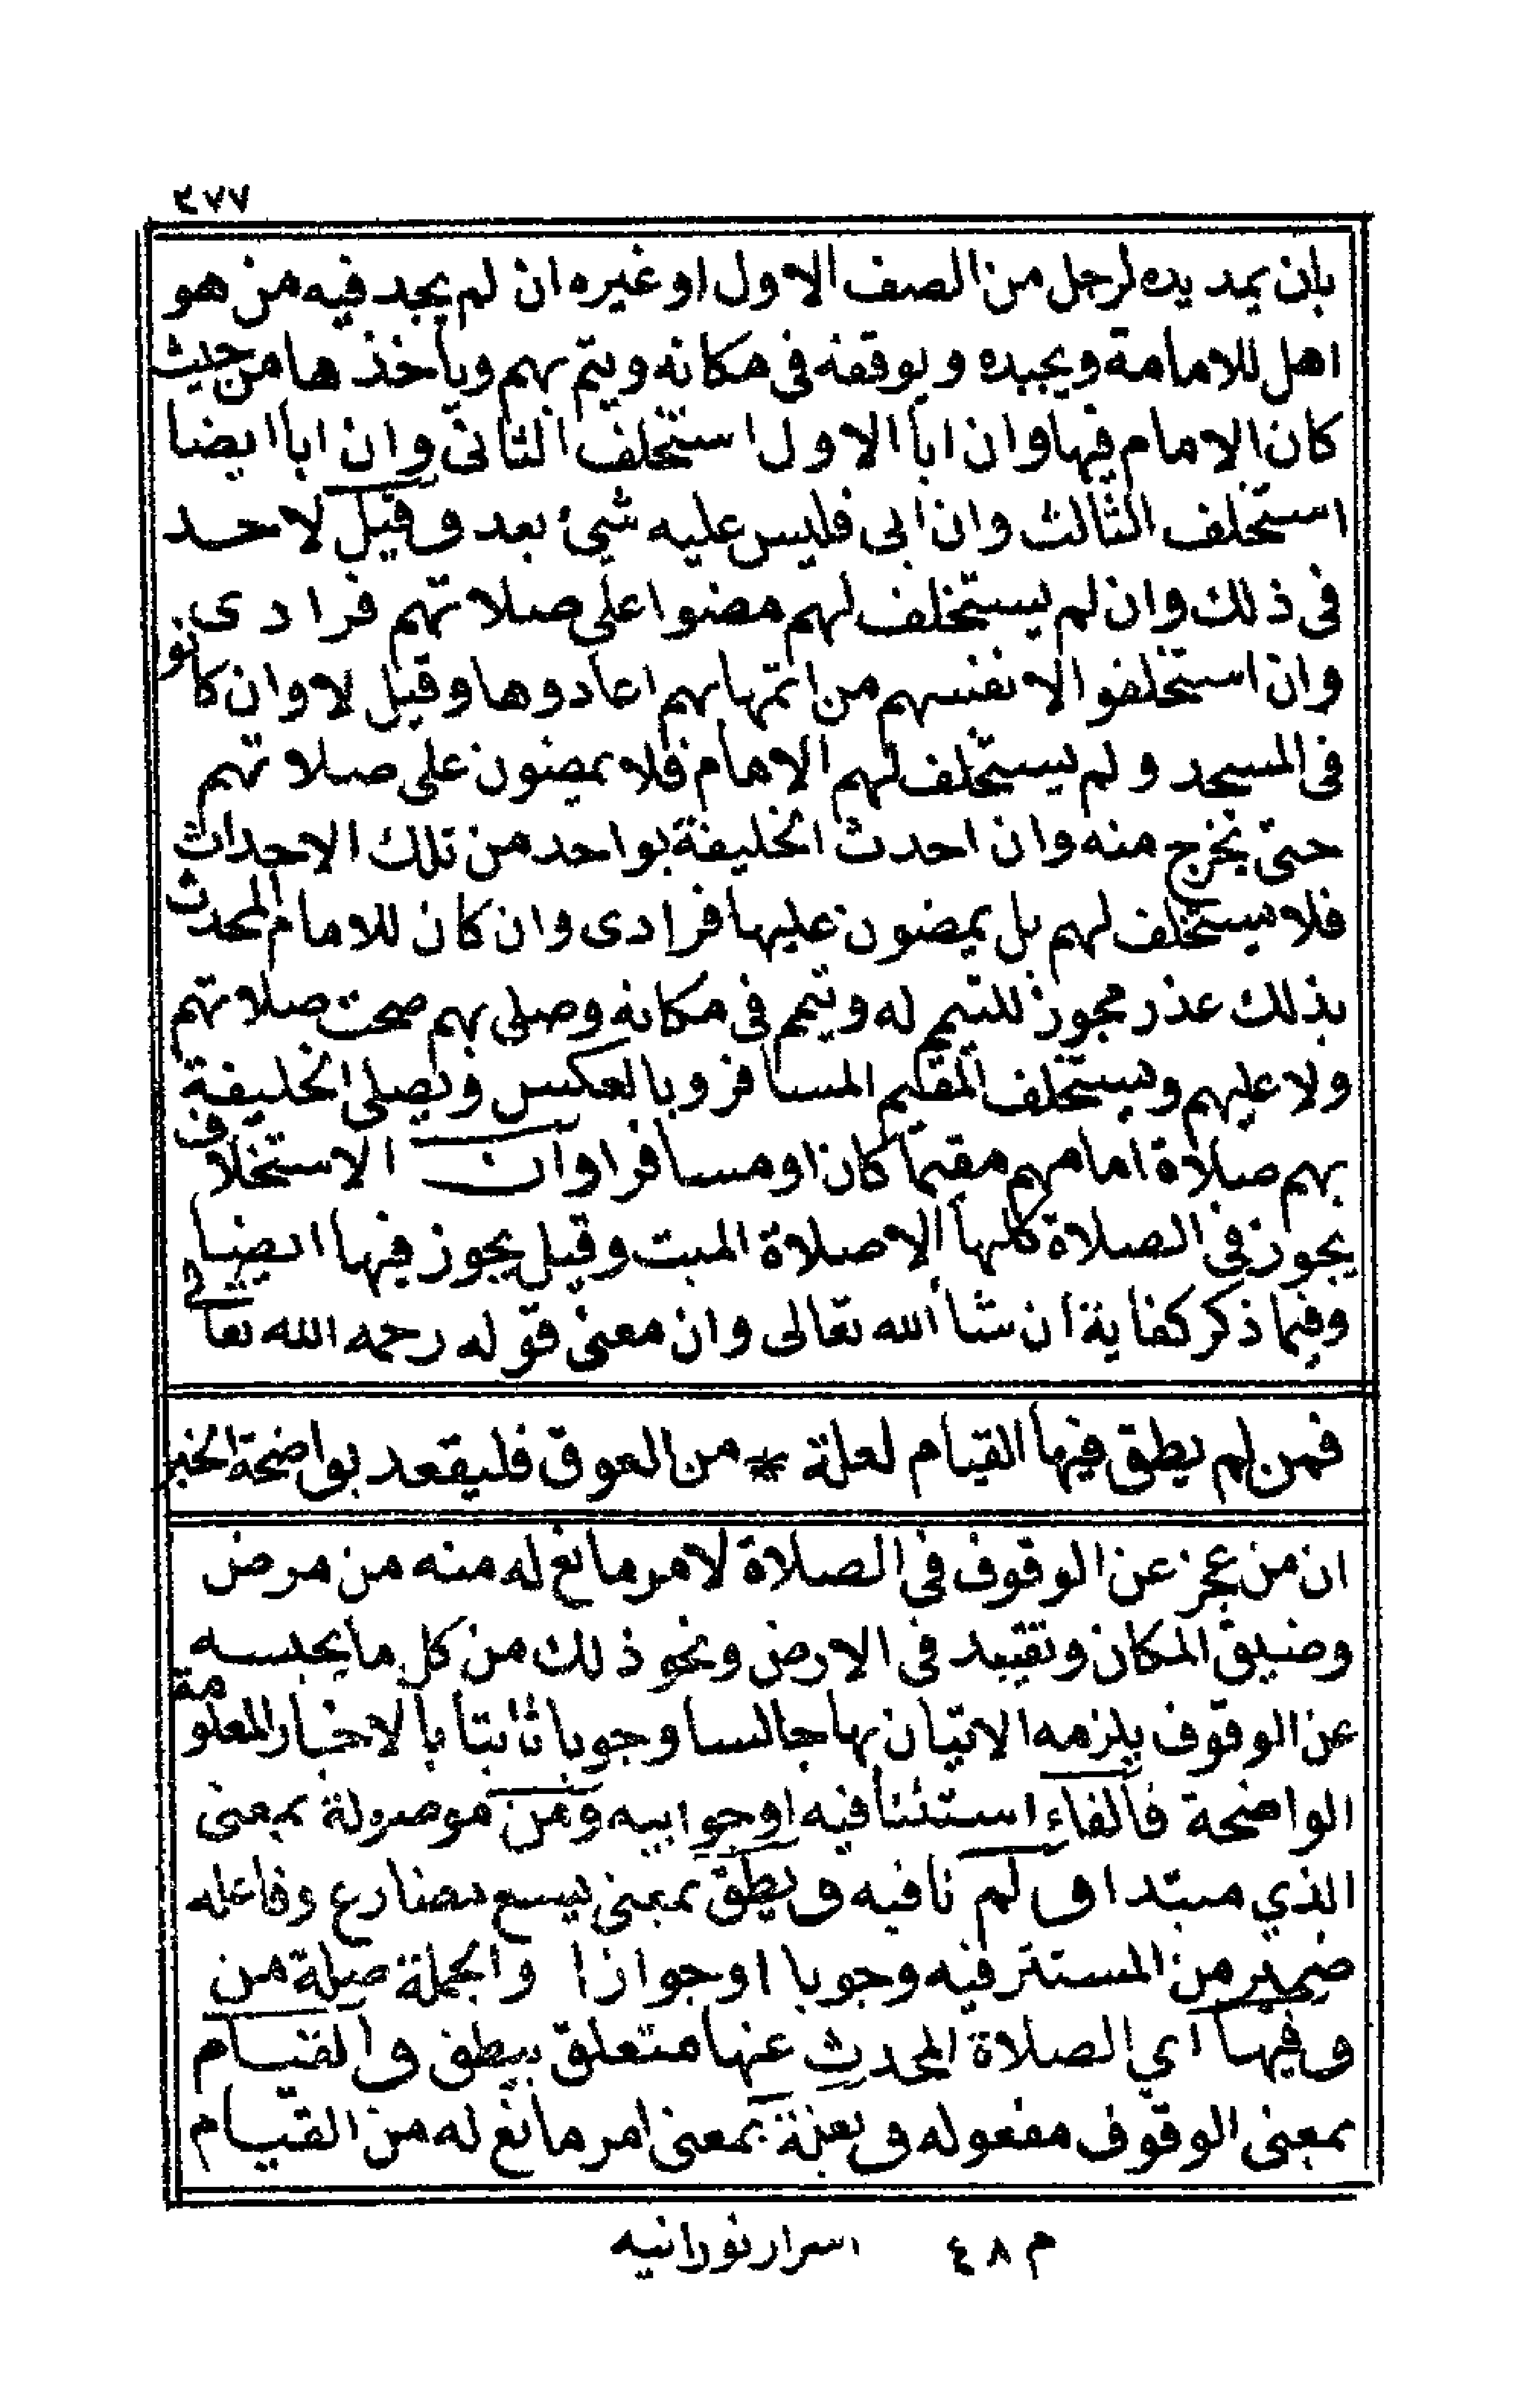 ٣٧٧
بان يمد يده لرجل من الصف الاول او غيره ان لم يجد فيه من هو
اهل للامامة ويجبده ويوقفه في مكانه ويتم بهم ويأخذها من حيث
كان الامام فيها وان ابا الاول استخلف الثانى وان ابا ايضا
استخلف الثالث وان ابى فليس عليه شيئ بعد وقيل لاحد
فى ذلك وان لم يستخلف لهم مضوا على صلاتهم فرادى
وان استخلفوا لانفسهم من اتمها بهم اعادوها وقيل لا وان كانوا
فى المسجد ولم يستخلف لهم الامام فلا يمضون على صلاتهم
حتى يخرج منه وان احدث الخليفة بواحد من تلك الاحداث
فلا يستخلف لهم بل يمضون عليها فرادى وان كان للامام المحدث
بذلك عذر مجوز للتيمم له ويتمم فى مكانه وصلى بهم صحت صلاتهم
ولا عليهم ويستخلف المقيم المسافر وبالعكس ويصلى الخليفة
بهم صلاة امامهم مقيما كان او مسافرا وان الاستخلاف
يجوز فى الصلاة كلها الا صلاة الميت وقيل يجوز فيها ايضا
وفيما ذكر كفاية ان شأ الله تعالى وان معنى قوله رحمه الله تعالى
فمن لم يطق فيها القيام لعلة * من العوق فليقعد بواضحة الخبر
ان من عجز عن الوقوف فى الصلاة لامر مانع له منه من مرض
وضيق المكان وتقييد فى الارض ونحو ذلك من كل ما يحبسه
عن الوقوف يلزمه الاتيان بها جالسا وجوبا ثابتا بالاخبار المعلومة
الواضحة فالفاء استئنافيه او جوابيه ومن موصولة بمعنى
الذي مبتدا و لم نافيه و يطق بمعنى يسع مضارع وفاعله
ضمير من المستتر فيه وجوبا او جوازا والجملة صلة من
و فيها اي الصلاة المحدث عنها متعلق بيطق و القيام
بمعنى الوقوف مفعوله و لعلة بمعنى امر مانع له من القيام
م ٤٨ اسرار نورانيه